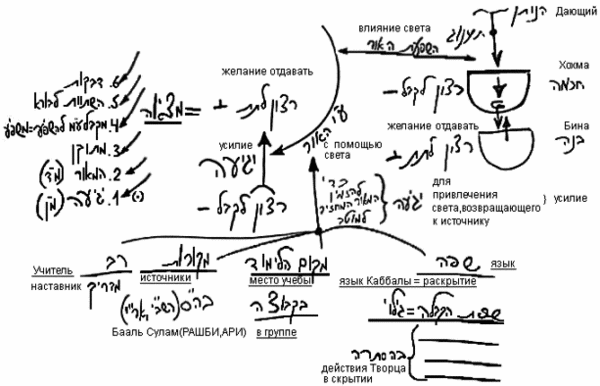 הנותן Дающий
влияние света
תענוג
השפעת האור
Хохма
חכמה
רצון לקבל –
желание отдавать
Бина
בינה
רצון לתת +
для
привлечения
света,возвращающего
к источнику
} усилие
желание отдавать
מציאה = + רצון לתת
ע"י האור
усилие
с помощью
света
יגיעה
– רצון לקבל
כדי
להזמין
המאור המחזיר
למוטב
} יגיעה
6. דבקות
5. השתוות לבורא
4. מקבל ע"מ להשפיע=משפיע
3. מתוקן
2. המאור (מ"ד)
1. יגיעה (מ"ן) (–)
Учитель
наставник
רב
מדריך
מקורות
источники
בה"ס (רשב"י, אר"י)
Бааль Сулам(РАШБИ,АРИ)
מקום הלימוד
место учебы
בקבוצה
в группе
שפה
язык
язык Каббалы = раскрытие
שפת הקבלה = גילוי
בהסתרה
действия Творца
в скрытии